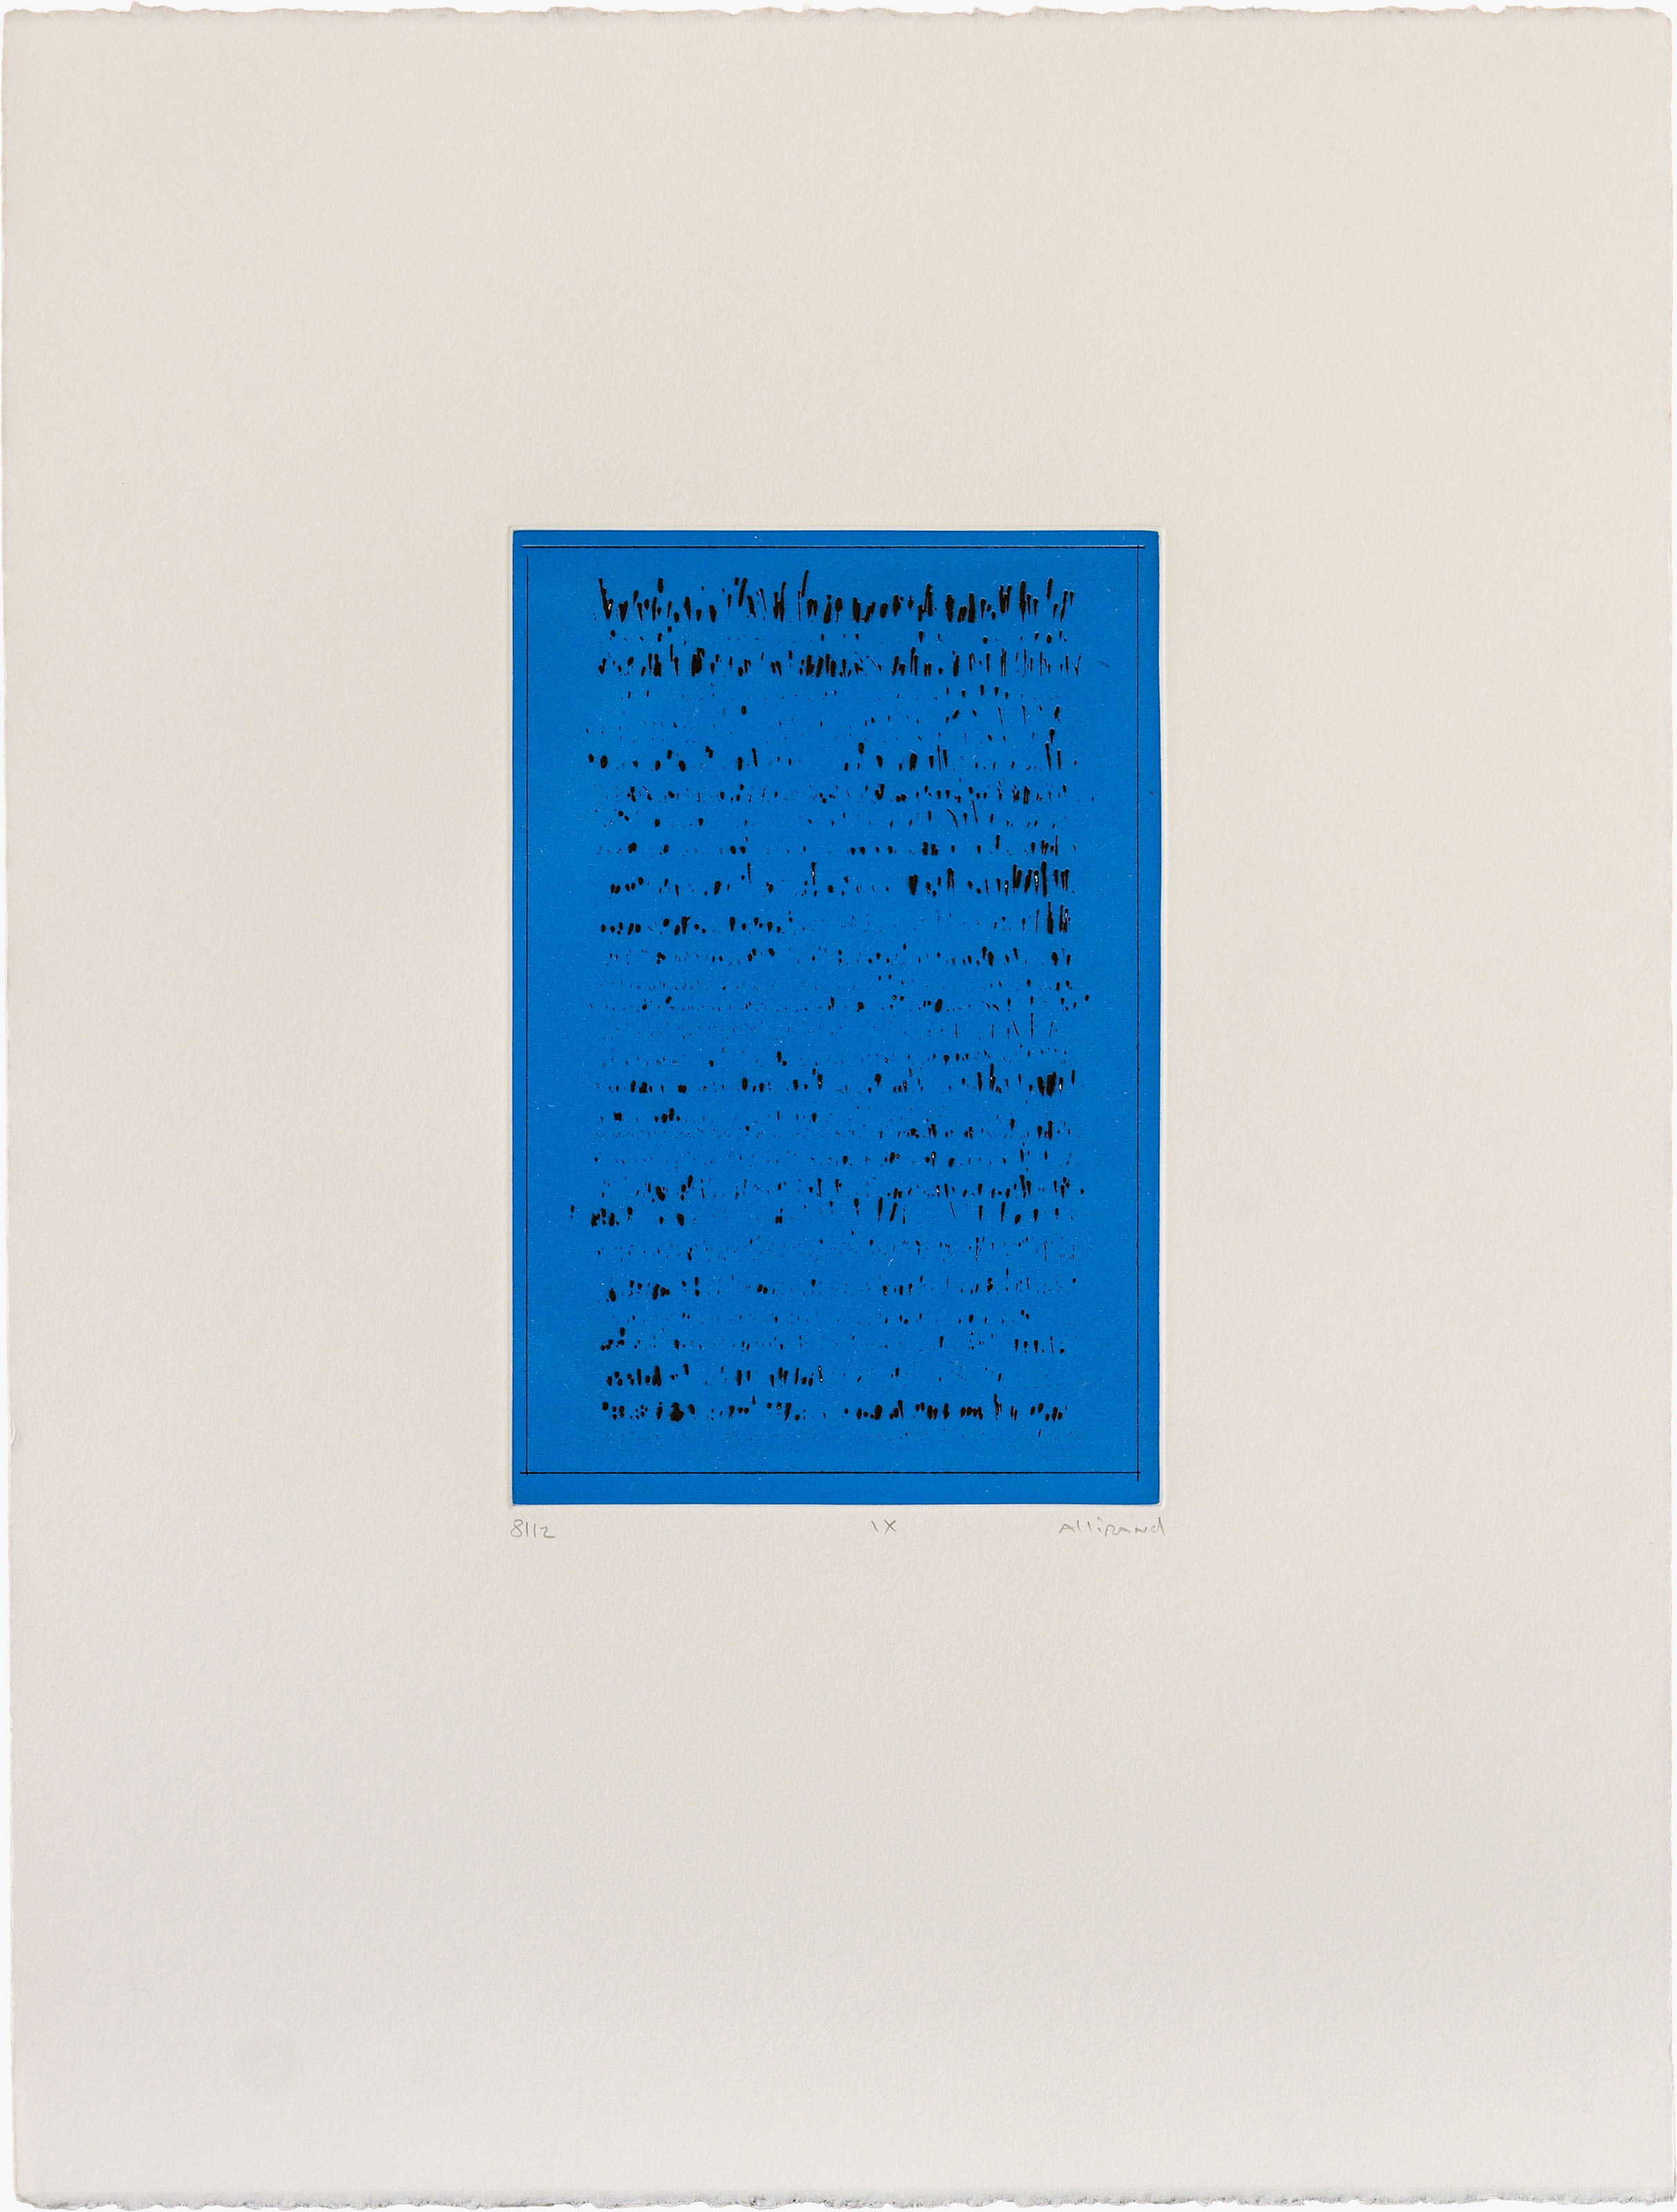 8/12 IX Allirand